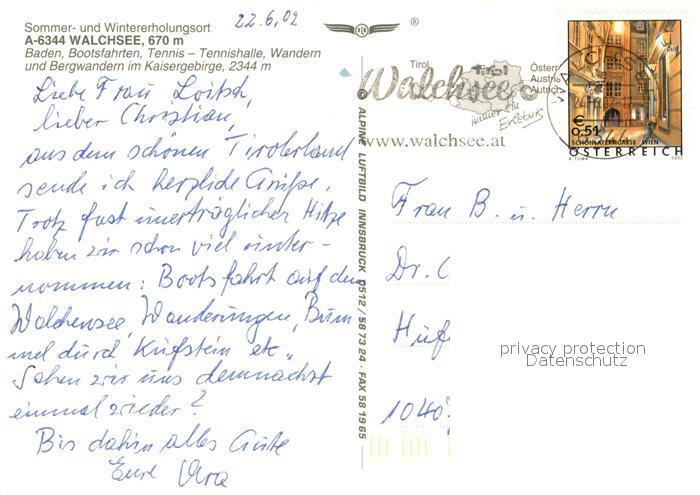 22.6.02
Sommer- und Wintererholungsort
A-6344 WALCHSEE, 670 m
Baden, Bootsfahrten, Tennis – Tennishalle, Wandern
und Bergwandern im Kaisergebirge, 2344 m
Liebe Frau Loitsch,
lieber Christian,
aus dem schönen Tirolerland
sende ich herzliche Grüße.
Trotz fast unerträglicher Hitze
haben wir schon viel unter-
nommen: Bootsfahrt auf dem
Walchensee, Wanderungen, Bum-
mel durch Kufstein etc.
Sehen wir uns demnächst
einmal wieder?
Bis dahin alles Gute
Eure Vera
® 
© ALPINE LUFTBILD INNSBRUCK 0512/58 73 24 · FAX 58 19 65
Tirol
Walchsee
Tirol
immer ein
Erlebnis
Österr
Austria
Autric
www.walchsee.at
WALCHSEE
€
0,51
SCHÖNLATERNGASSE WIEN
ÖSTERREICH
A. TUMA 2002
Frau B. u. Herrn
Dr. C
Huf
1040
privacy protection
Datenschutz